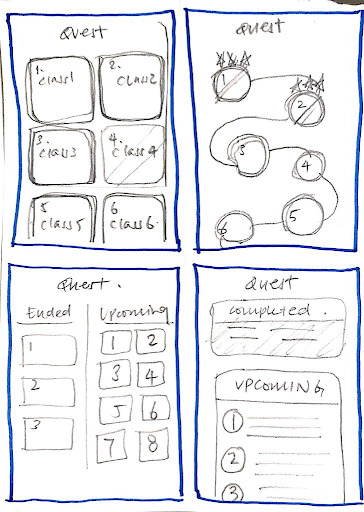 Quest
1.
class1
2.
class2
3
class3
4.
class4
5
class5
6
class6.
Quest
1
2
3
4
5
6
Quest.
Ended
Upcoming
1
2
3
1
2
3
4
5
6
7
8
Quest
completed.
UPCOMING
1
2
3